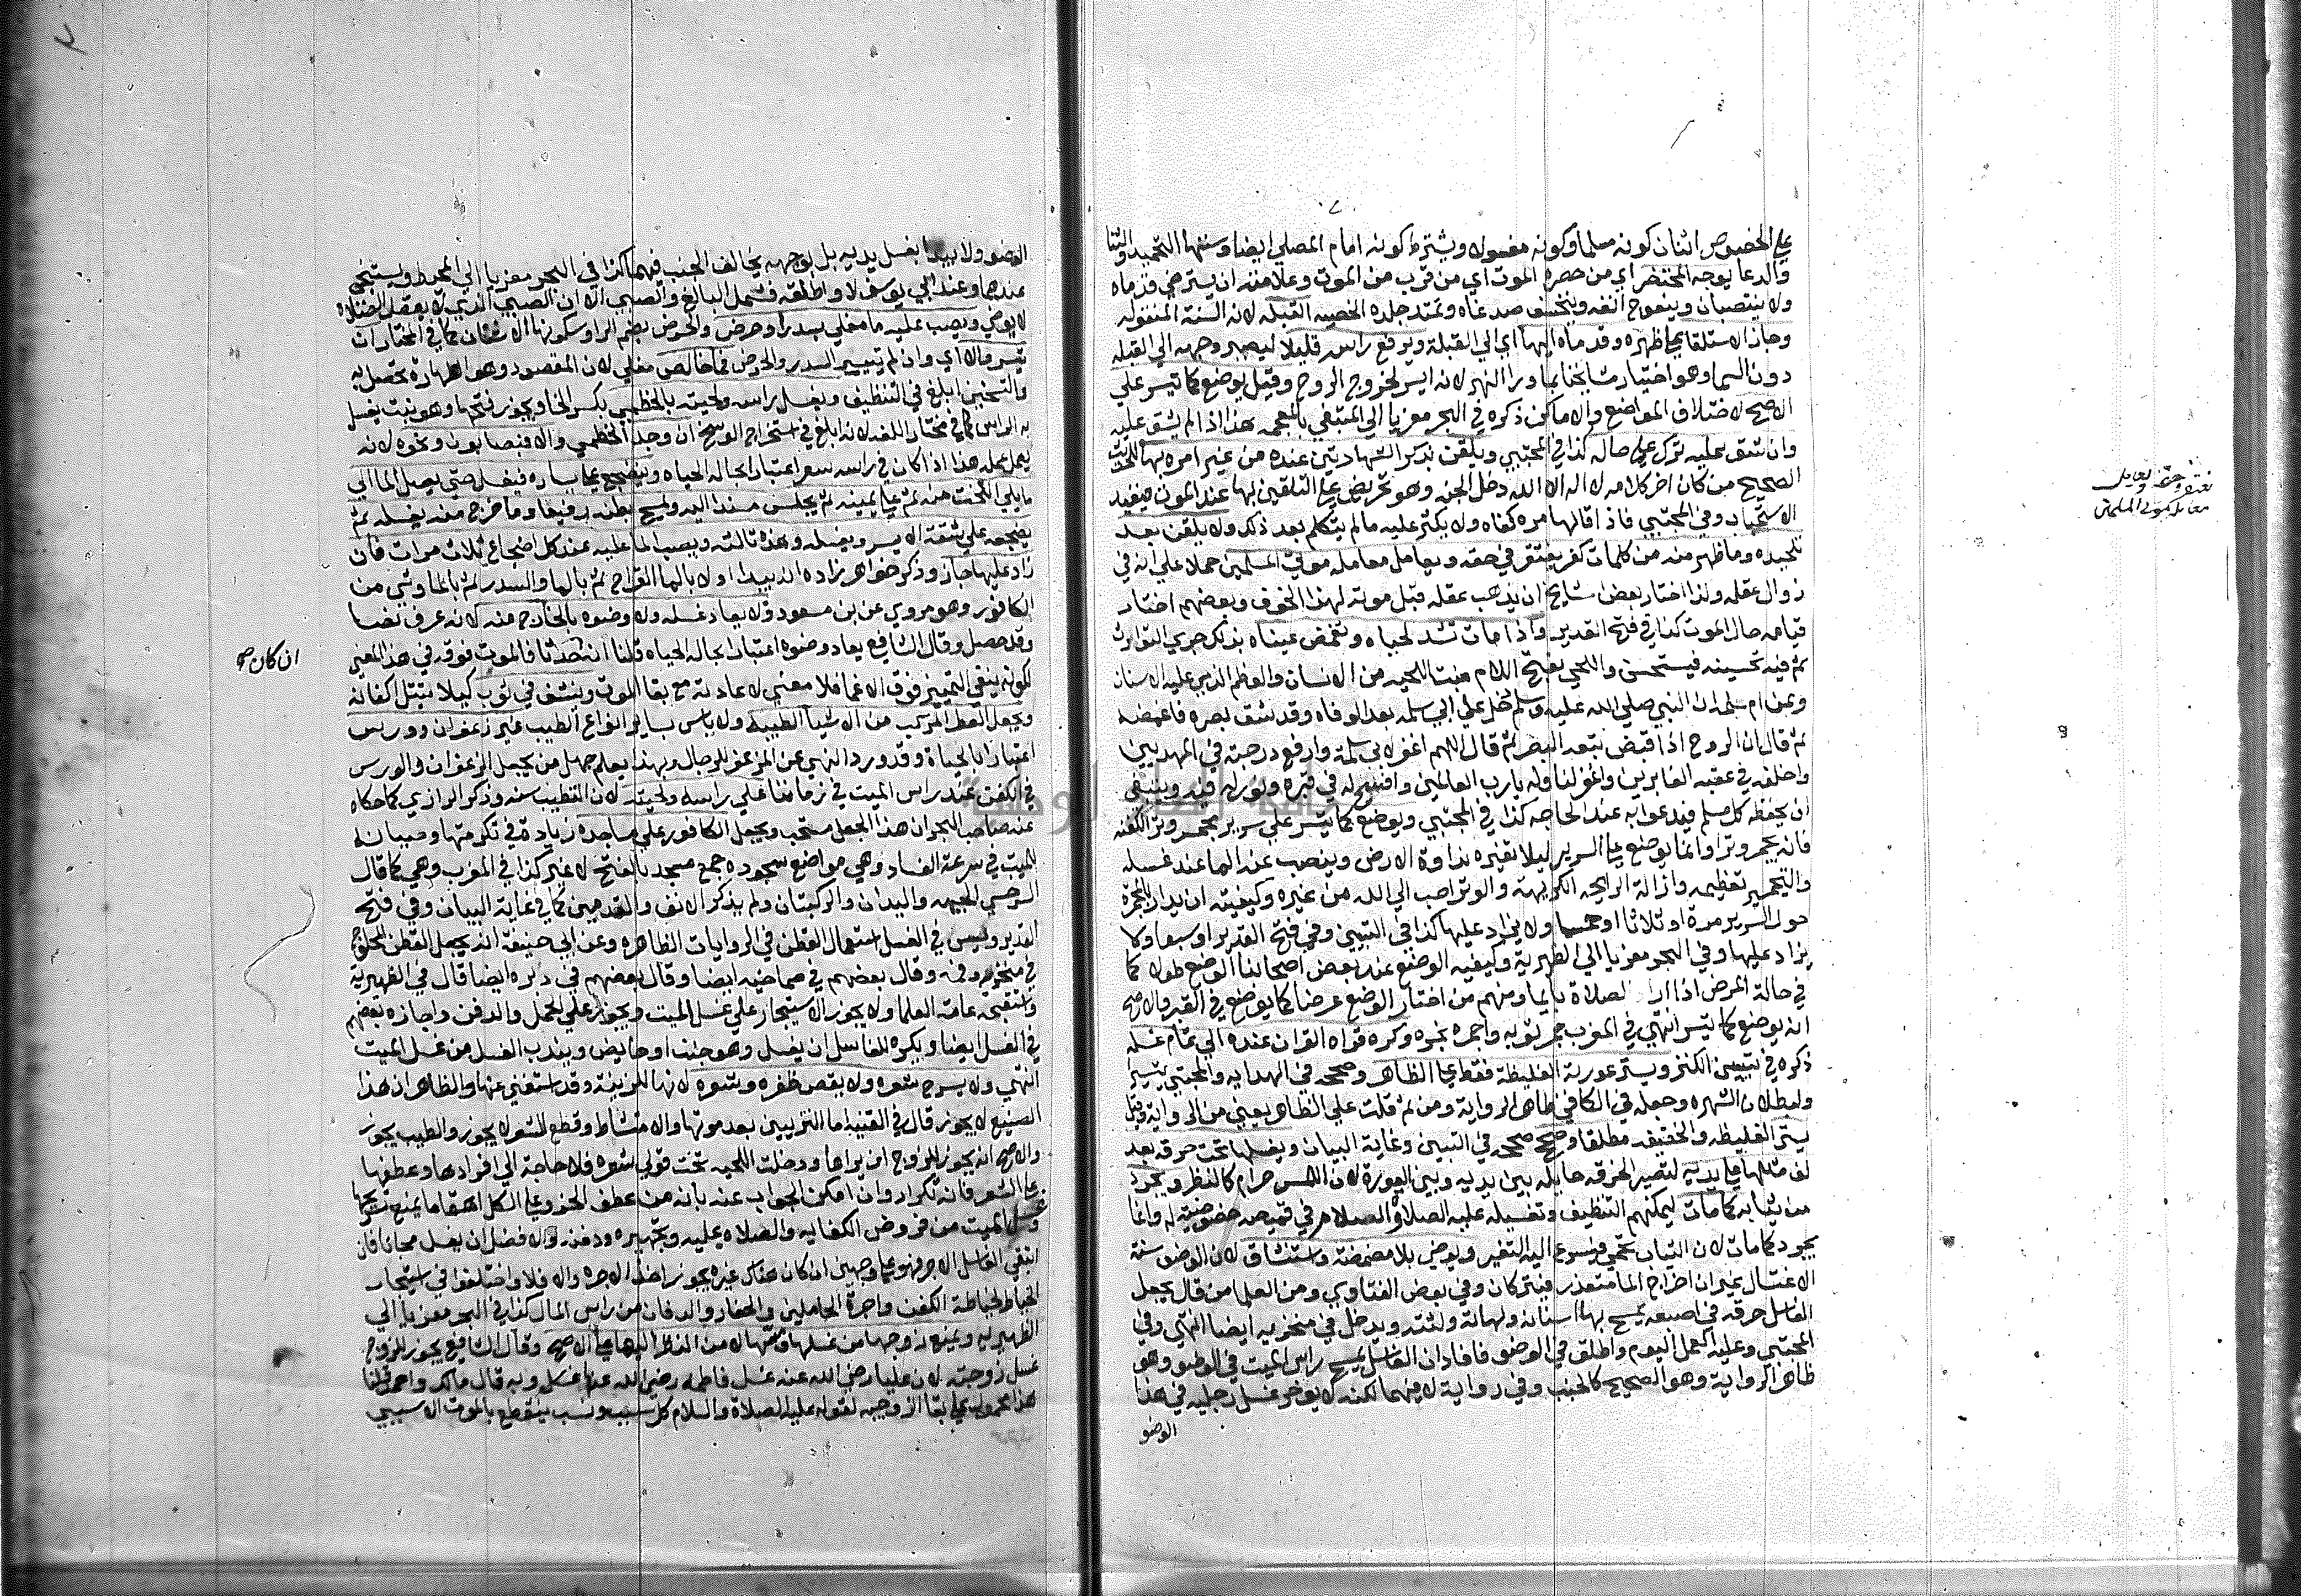 علي الخصوص اثنان كونه مسلما وكونه مغسولا ويشترط كونه امام المصلي ايضا وسننها التحميد والثنا
والدعا يوجه المحتضر اي من حضره الموت اي من قرب من الموت وعلامته ان يسترخي قدماه
ولا ينتصبان وينعوج انفه وينخسف صدغاه وتمتد جلدة الخصيه القبله لانه السنة المنقوله
وجاز الاستلقا علي ظهره وقدماه اليها اي الي القبلة ويرفع راسه قليلا ليصير وجهه الي القبله
دون السما وهو اختيار مشايخنا بما ورا النهر لانه ايسر لخروج الروح وقيل يوضع كما تيسر علي
الاصح لاختلاف المواضع والاماكن ذكره في البحر معزيا الي المبتغي بالمعجمه هذا اذا لم يشق عليه
وان شق عليه ترك علي حاله كذا في المجتبي ويلقن بذكر الشهادتين عنده من غير امره بها للحديث
الصحيح من كان اخر كلامه لا اله الا الله دخل الجنه وهو تحريض علي التلقين بها عند الموت فيفيد
الاستحباب وفي المجتبي فاذا قالها مره كفاه ولا يكثر عليه ما لم يتكلم بعد ذلك ولا يلقن بعد
تلحيده وما ظهر منه من كلمات كفر يغتفر في حقه ويعامل معاملة موتي المسلمين حملا علي انه في
زوال عقله ولذا اختار بعض مشايخ ان يذهب عقله قبل موته لهذا الخوف وبعضهم اختار
قيامه حال الموت كذا في فتح القدير واذا مات تشد لحياه وتغمض عيناه بذلك جري التوارث
ثم فيه تحسينه فيستحسن واللحي بفتح اللام منبت اللحيه من الانسان والعظم الذي عليه الاسنان
وعن ام سلمه ان النبي صلي الله عليه وسلم دخل علي ابي سلمه بعد الوفاه وقد شق بصره فاغمضه
ثم قال ان الروح اذا قبض تبعه البصر ثم قال اللهم اغفر لابي سلمة وارفع درجته في المهديين
واخلفه في عقبه الغابرين واغفر لنا وله يا رب العالمين وافسح له في قبره ونور له فيه وينبغي
ان يحفظه كل مسلم فيدعوا به عند الحاجه كذا في المجتبي ويوضع كما تيسر علي سرير مجمر وترا لكفنه
فانه يجمر وترا وانما يوضع علي السرير ليلا تغيره نداوة الارض وينصب عنه الما عند غسله
والتجمير تعظيمه وازالة الرايحه الكريهة والوتر احب الي الله من غيره وكيفيته ان يدار بالمجمرة
حول السرير مرة او ثلاثا او خمسا ولا يزاد عليها كذا في التبيين وفي فتح القدير او سبعا ولا
يزاد عليها وفي البحر معزيا الي الظهيرية وكيفيه الوضع عند بعض اصحابنا الوضع طولا كما
في حالة المرض اذا اراد الصلاة بايما ومنهم من اختار الوضع عرضا كما يوضع في القبر والاصح
انه يوضع كما تيسر انتهي في المغرب جمر ثوبه واجمره بخره وكره قراة القران عنده الي تمام غسله
ذكره في تبيين الكنز ويستر عورته الغليظة فقط علي الظاهر وصححه في الهدايه والمجتبي تيسيرا
ولبطلان الشهوه وجعله في الكافي ظاهر الرواية ومن ثم قلت علي الظاهر يعني من الرواية وقيل
يستر الغليظه والخفيفه مطلقا وصححه في التبيين وغاية البيان ويغسلها تحت خرقه بعد
لف مثلها علي يديه لتصير الخرقه حايله بين يديه وبين العورة لان اللمس حرام كالنظر ويجرد
من ثيابه كما مات ليمكنهم التنظيف وتغسيله عليه الصلاة والسلام في قميصه خصوصية له وانما
يجرد كما مات لان الثياب تحمي فيسرع اليه التغير ويوضي بلا مضمضة واستنشاق لان الوضو سنة
الاغتسال غير ان اخراج الما متعذر فيتركان وفي بعض الفتاوي ومن العلما من قال يجعل
الغاسل خرقه في اصبعه يمسح بها اسنانه ولهاته ولثته ويدخل في منخريه ايضا انتهي وفي
المجتبي وعليه العمل اليوم واطلق في الوضو فافاد ان الغاسل يمسح راس الميت في الوضو وهو
ظاهر الرواية وهو الصحيح كالجنب وفي رواية لا فيهما لكنه لا يوخر غسل رجليه في هذا
الوضو
الوضو ولا يبدا بغسل يديه بل بوجهه يخالف الجنب فيهما كذا في البحر معزيا الي المحيط ويستنجي
عندهما وعند ابي يوسف لا واطلقه فشمل البالغ والصبي الا ان الصبي الذي لا يعقل الصلاة
لا يوضي ويصب عليه ما مغلي بسدر او حرض والحرض بضم الرا وسكونها الاشنان كما في المختار ان
تيسر والا اي وان لم يتيسر السدر والحرض فما خالص مغلي لان المقصود وهو الطهارة تحصل به
والتسخين ابلغ في التنظيف ويغسل راسه ولحيته بالخطمي بكسر الخا ويجوز فتحها وهو نبت يغسل
به الراس كما في مختار اللغه لانه ابلغ في استخراج الوسخ ان وجد الخطمي والا فبصابون ونحوه لانه
يعمل عمله هذا اذا كان في راسه شعر اعتبارا بحاله الحياه ويضجع علي يساره فيغسل حتي يصل الما الي
ما يلي التخت منه ثم علي يمينه ثم يجلس مسندا اليه ويمسح بطنه رفيقا وما خرج منه يغسله ثم
يضجعه علي شقه الايسر ويغسله وهذه ثالثه ويصب الما عليه عند كل اضجاع ثلاث مرات فان
زاد عليها جاز وذكر خواهر زاده انه يبدا اولا بالما القراح ثم بالما والسدر ثم بالما وشي من
الكافور وهو مروي عن بن مسعود ولا يعاد غسله ولا وضوه بالخارج منه لانه عرف نصا
وقد حصل وقال الشافعي يعاد وضوه اعتبارا بحاله الحياه قلنا انه حدثا فالموت فوقه في هذا المعني
لكونه ينفي التمييز فوق الاغما فلا معني لاعادته مع بقا الموت وينشف في ثوب كيلا تبتل اكفانه
ويجعل العطر المركب من الاشيا الطيبة ولا باس بساير انواع الطيب غير زعفران وورس
اعتبارا بالحياة وقد ورد النهي عن المزعفر للرجال وبهذا يعلم جهل من يجعل الزعفران والورس
في الكفن عند راس الميت في زماننا علي راسه ولحيته لان التطيب سنه وذكر الرازي كما حكاه
عنه صاحب البحر ان هذا الجعل مستحب ويجعل الكافور علي مساجده زيادة في تكرمتها وصيانة
للميت في سرعة الفساد وهي مواضع سجوده جمع مسجد بالفتح لا غير كذا في المغرب وهي كما قال
السرخسي الجبهه واليدان والركبتان ولم يذكر الانف والقدمين كما في غاية البيان وفي فتح
القدير وليس في الغسل استعمال القطن في الروايات الظاهره وعن ابي حنيفة انه يجعل القطن المحلوج
في منخريه وفمه وقال بعضهم في صماخيه ايضا وقال بعضهم في دبره ايضا قال في الظهيرية
واستقبحه عامة العلما ولا يجوز الاستيجار علي غسل الميت ويجوز علي الحمل والدفن واجازه بعضهم
في الغسل ايضا ويكره للغاسل ان يغسل وهو جنب او حايض ويندب الغسل من غسل الميت
انتهي ولا يسرح شعره ولا يقص ظفره وشعره لانها للزينة وقد استغني عنها والظاهر ان هذا
الصنيع لا يجوز قال في القنية اما التزيين بعد موتها والامتشاط وقطع الشعر لا يجوز والطيب يجوز
والاصح انه يجوز للزوج ان يراها ودخلت اللحيه تحت قولي شعره فلا حاجة الي افرادها وعطفها
علي الشعر فانه تكرار وان امكن الجواب عنه بانه من عطف الجزو علي الكل اهتماما بمنع تسريحها
وغسل الميت من فروض الكفايه والصلاه عليه وتجهيزه ودفنه والافضل ان يغسل مجانا فان
ابتغي الغاسل الاجر فهو علي وجهين ان كان هناك غيره يجوز اخذ الاجره والا فلا واختلفوا في استيجار
الخياط لخياطة الكفن واجرة الحاملين والحفار والدفان من راس المال كذا في البحر معزيا الي
الظهيريه ويمنع زوجها من غسلها ومسها لا من النظر اليها علي الاصح وقال الشافعي يجوز للزوج
غسل زوجته لان عليا رضي الله عنه غسل فاطمه رضي الله عنها وبه قال مالك واحمد قلنا
هذا محمول علي بقا الزوجيه لقوله عليه الصلاة والسلام كل سبب ونسب ينقطع بالموت الا سببي
ان كان صح